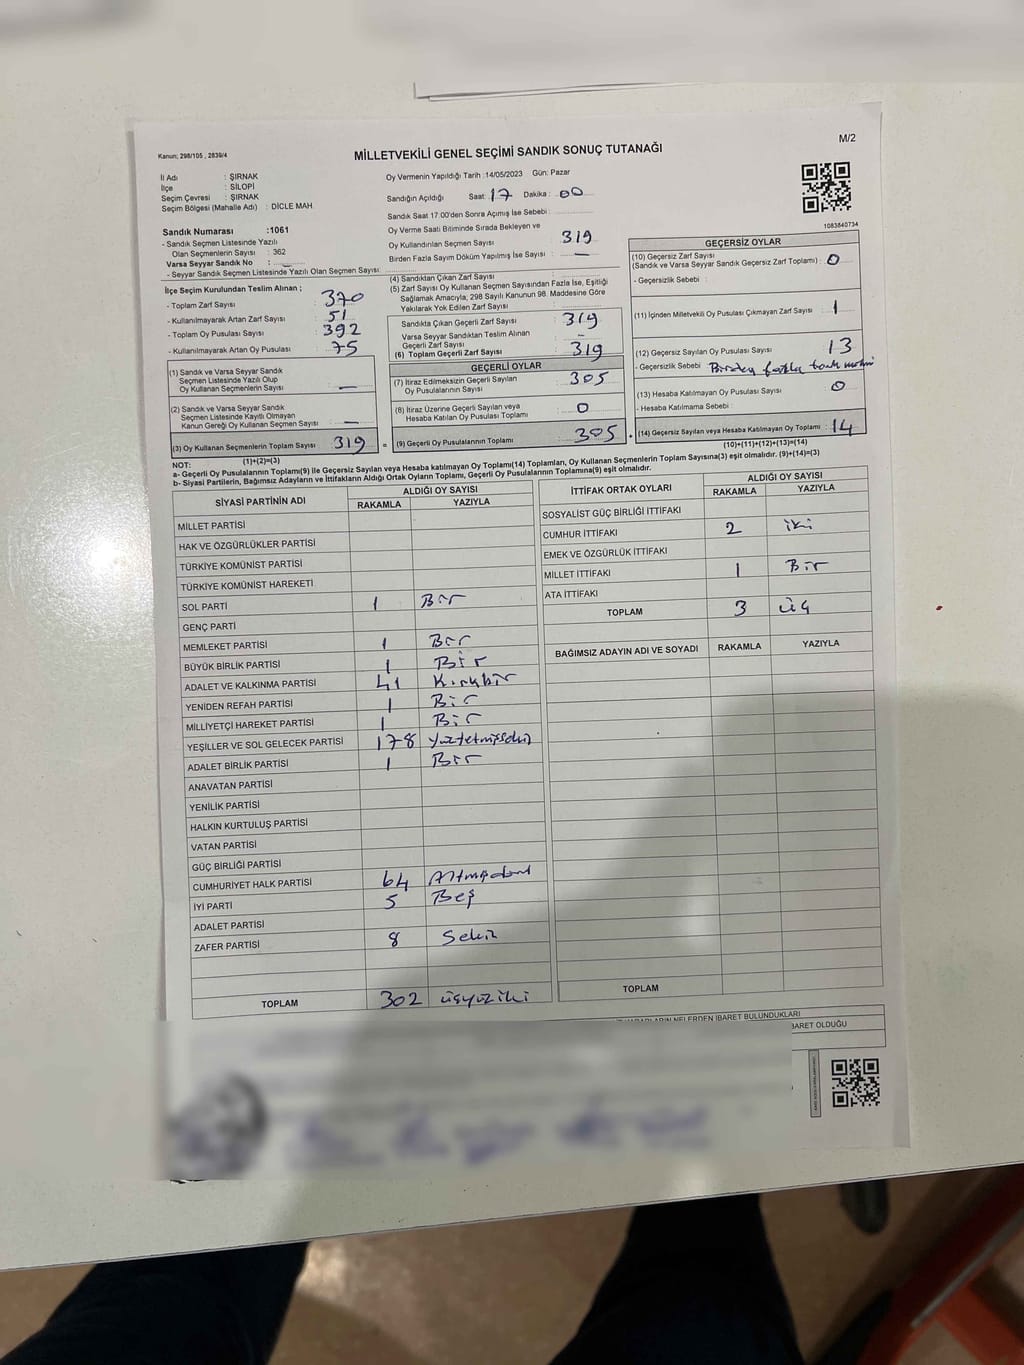 Kanun; 298/105 , 2839/4
M/2
MİLLETVEKİLİ GENEL SEÇİMİ SANDIK SONUÇ TUTANAĞI
İl Adı : ŞIRNAK
İlçe : SİLOPİ
Seçim Çevresi : ŞIRNAK
Seçim Bölgesi (Mahalle Adı) : DİCLE MAH.
Oy Vermenin Yapıldığı Tarih :14/05/2023 Gün: Pazar
Sandığın Açıldığı Saat: 17 Dakika : 00
Sandık Saat 17.00'den Sonra Açımış İse Sebebi :
Oy Verme Saati Bitiminde Sırada Bekleyen ve
Oy Kullandırılan Seçmen Sayısı 319
Birden Fazla Sayım Döküm Yapılmış İse Sayısı : —
1083840734
Sandık Numarası :1061
- Sandık Seçmen Listesinde Yazılı
Olan Seçmenlerin Sayısı : 362
Varsa Seyyar Sandık No : —
- Seyyar Sandık Seçmen Listesinde Yazılı Olan Seçmen Sayısı:
İlçe Seçim Kurulundan Teslim Alınan ;
- Toplam Zarf Sayısı 370
- Kullanılmayarak Artan Zarf Sayısı 51
- Toplam Oy Pusulası Sayısı 392
- Kullanılmayarak Artan Oy Pusulası 75
(1) Sandık ve Varsa Seyyar Sandık
Seçmen Listesinde Yazılı Olup
Oy Kullanan Seçmenlerin Sayısı —
(2) Sandık ve Varsa Seyyar Sandık
Seçmen Listesinde Kayıtlı Olmayan
Kanun Gereği Oy Kullanan Seçmen Sayısı —
(3) Oy Kullanan Seçmenlerin Toplam Sayısı 319 =
(1)+(2)=(3)
(4) Sandıktan Çıkan Zarf Sayısı
(5) Zarf Sayısı Oy Kullanan Seçmen Sayısından Fazla İse, Eşitliği
Sağlamak Amacıyla, 298 Sayılı Kanunun 98. Maddesine Göre
Yakılarak Yok Edilen Zarf Sayısı
Sandıkta Çıkan Geçerli Zarf Sayısı 319
Varsa Seyyar Sandıktan Teslim Alınan
Geçerli Zarf Sayısı
(6) Toplam Geçerli Zarf Sayısı 319
GEÇERLİ OYLAR
(7) İtiraz Edilmeksizin Geçerli Sayılan
Oy Pusulalarının Sayısı 305
(8) İtiraz Üzerine Geçerli Sayılan veya
Hesaba Katılan Oy Pusulası Toplamı 0
(9) Geçerli Oy Pusulalarının Toplamı 305 +
GEÇERSİZ OYLAR
(10) Geçersiz Zarf Sayısı
(Sandık ve Varsa Seyyar Sandık Geçersiz Zarf Toplamı) : 0
- Geçersizlik Sebebi :
(11) İçinden Milletvekili Oy Pusulası Çıkmayan Zarf Sayısı : 1
(12) Geçersiz Sayılan Oy Pusulası Sayısı 13
- Geçersizlik Sebebi Birden fazla
(13) Hesaba Katılmayan Oy Pusulası Sayısı 0
- Hesaba Katılmama Sebebi :
(14) Geçersiz Sayılan veya Hesaba Katılmayan Oy Toplamı : 14
(10)+(11)+(12)+(13)=(14)
NOT:
a- Geçerli Oy Pusulalarının Toplamı(9) ile Geçersiz Sayılan veya Hesaba katılmayan Oy Toplamı(14) Toplamları, Oy Kullanan Seçmenlerin Toplam Sayısına(3) eşit olmalıdır. (9)+(14)=(3)
b- Siyasi Partilerin, Bağımsız Adayların ve İttifakların Aldığı Ortak Oyların Toplamı, Geçerli Oy Pusulalarının Toplamına(9) eşit olmalıdır.
SİYASİ PARTİNİN ADI
ALDIĞI OY SAYISI
RAKAMLA YAZIYLA
MİLLET PARTİSİ
HAK VE ÖZGÜRLÜKLER PARTİSİ
TÜRKİYE KOMÜNİST PARTİSİ
TÜRKİYE KOMÜNİST HAREKETİ
SOL PARTİ 1 Bir
GENÇ PARTİ
MEMLEKET PARTİSİ 1 Bir
BÜYÜK BİRLİK PARTİSİ 1 Bir
ADALET VE KALKINMA PARTİSİ 41 Kırkbir
YENİDEN REFAH PARTİSİ 1 Bir
MİLLİYETÇİ HAREKET PARTİSİ 1 Bir
YEŞİLLER VE SOL GELECEK PARTİSİ 178 Yüzyetmişsekiz
ADALET BİRLİK PARTİSİ 1 Bir
ANAVATAN PARTİSİ
YENİLİK PARTİSİ
HALKIN KURTULUŞ PARTİSİ
VATAN PARTİSİ
GÜÇ BİRLİĞİ PARTİSİ
CUMHURİYET HALK PARTİSİ 64 Altmışdört
İYİ PARTİ 5 Beş
ADALET PARTİSİ
ZAFER PARTİSİ 8 Sekiz
TOPLAM 302 üçyüziki
İTTİFAK ORTAK OYLARI
ALDIĞI OY SAYISI
RAKAMLA YAZIYLA
SOSYALİST GÜÇ BİRLİĞİ İTTİFAKI
CUMHUR İTTİFAKI 2 iki
EMEK VE ÖZGÜRLÜK İTTİFAKI
MİLLET İTTİFAKI 1 Bir
ATA İTTİFAKI
TOPLAM 3 üç
BAĞIMSIZ ADAYIN ADI VE SOYADI RAKAMLA YAZIYLA
TOPLAM
NELERDEN İBARET BULUNDUKLARI
BARET OLDUĞU